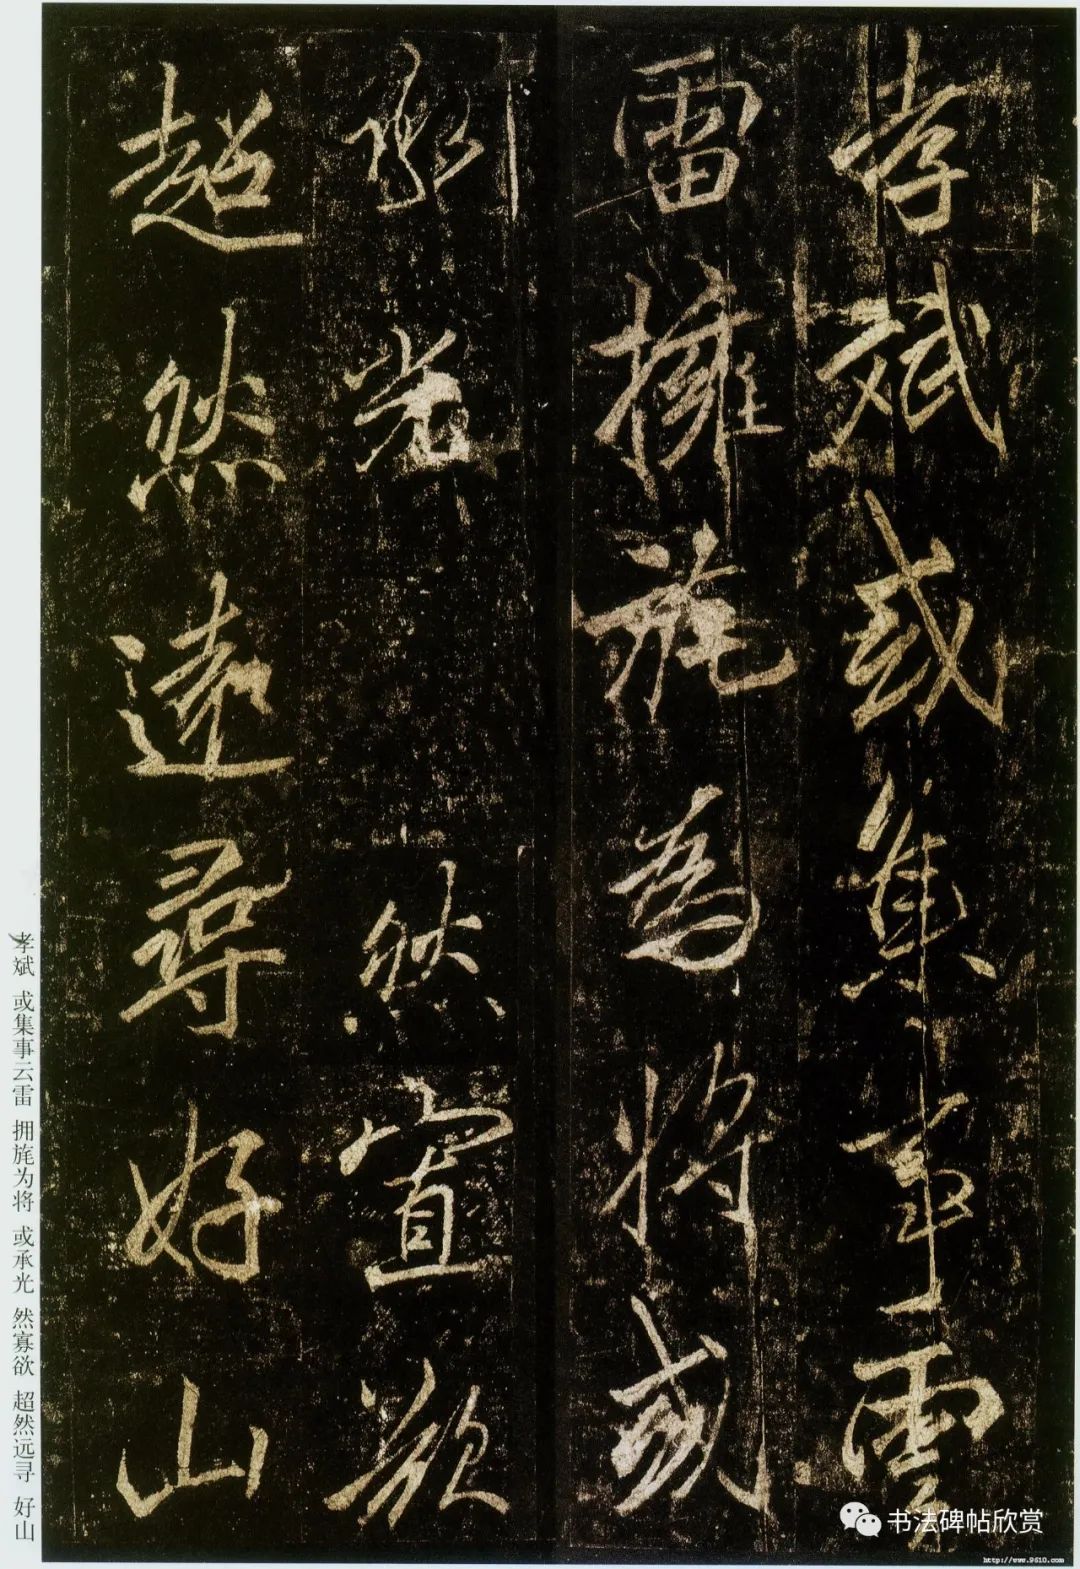 孝斌或集事雲
雷擁旄為将或
承光然寡欲
超然遠尋好山
孝斌 或集事云雷 拥旄为将 或承光 然寡欲 超然远寻 好山
书法碑帖欣赏
http://www.9610.com